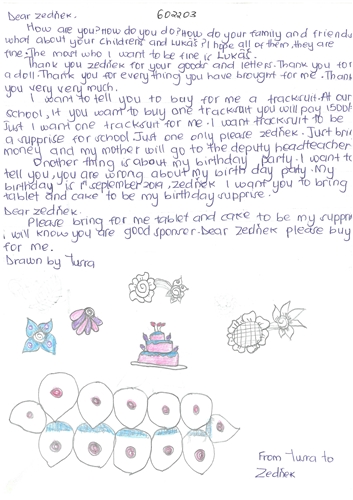 Dear zedñek. 602203
How are you? how do you do? How do your family and friends
what about your childrens and Lukas? I hope all of them, they are
fine. The most who I want to be fine is Lukas.
Thank you zedñek for your goods and letters. Thank you for
a doll. Thank you for everything you have brought for me. Thank
you very very much.
I want to tell you to buy for me a tracksuit. At our
school, if you want to buy one tracksuit you will pay 1500/
Just I want one tracksuit for me. I want tracksuit to be
a supprise for school. Just one only please zedñek. Just bring
money and my mother will go to the deputy headteacher
Onother thing is about my birthday party. I want to
tell you, you are wrong about my birth day party. My
birthday is 1st september 2019, zedñek I want you to bring
tablet and cake to be my birthday supprise.
Dear zedñek.
Please bring for me tablet and cake to be my supprise
i will know you are good sponsor. Dear zedñek please buy
for me.
Drawn by Turra
From Turra to
Zedñek